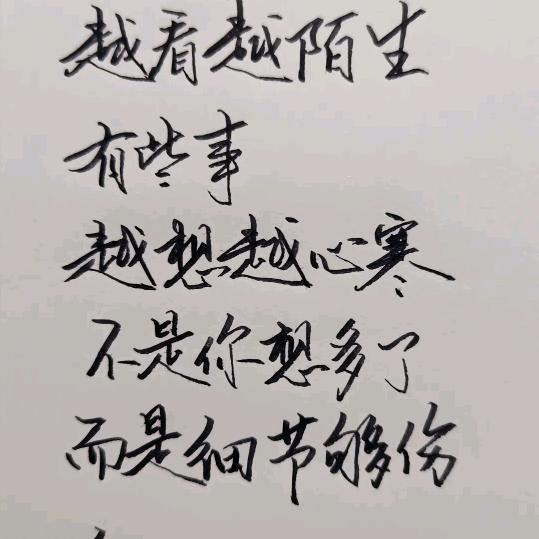 越看越陌生
有些事
越想越心寒
不是你想多了
而是细节够伤